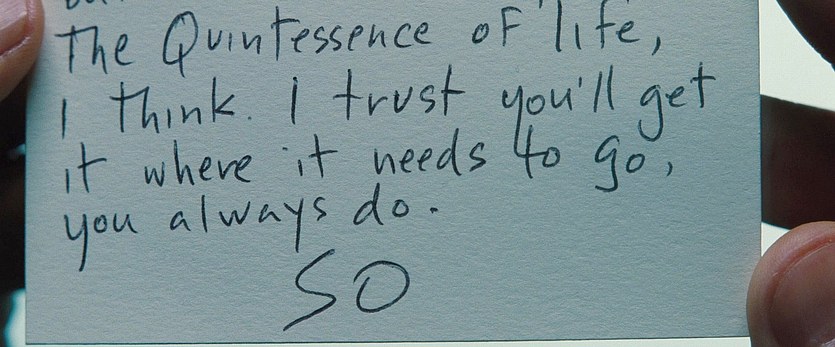 The Quintessence of 'life',
I think. I trust you'll get
it where it needs to go,
you always do.
SO